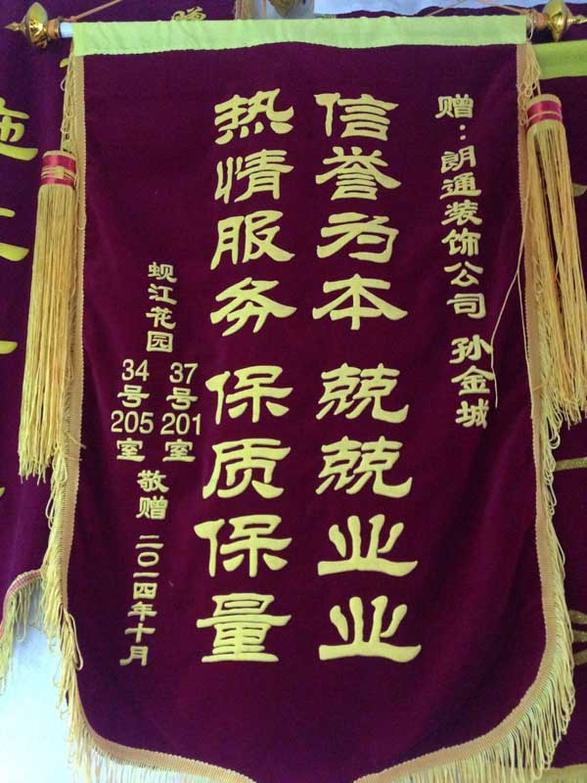 赠：朗通装饰公司 孙金城
信誉为本 兢兢业业
热情服务 保质保量
蚬江花园
37号201室
34号205室
敬赠
二〇一四年十月